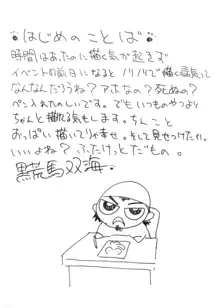 はじめのことば
時間はあたのに描く気が起きず
イベントの前日になるとノリノリで描く病気って
なんなんだろうね？アホなの？死ぬの？
ペン入れたのしいです。でもいつものやつより
ちゃんと描れる気もします。ちんこと
おっぱい描いてりゃ幸せ。そして見せつけたれ。
いいよね？ふたけっとだもの。
黒荒馬双海.